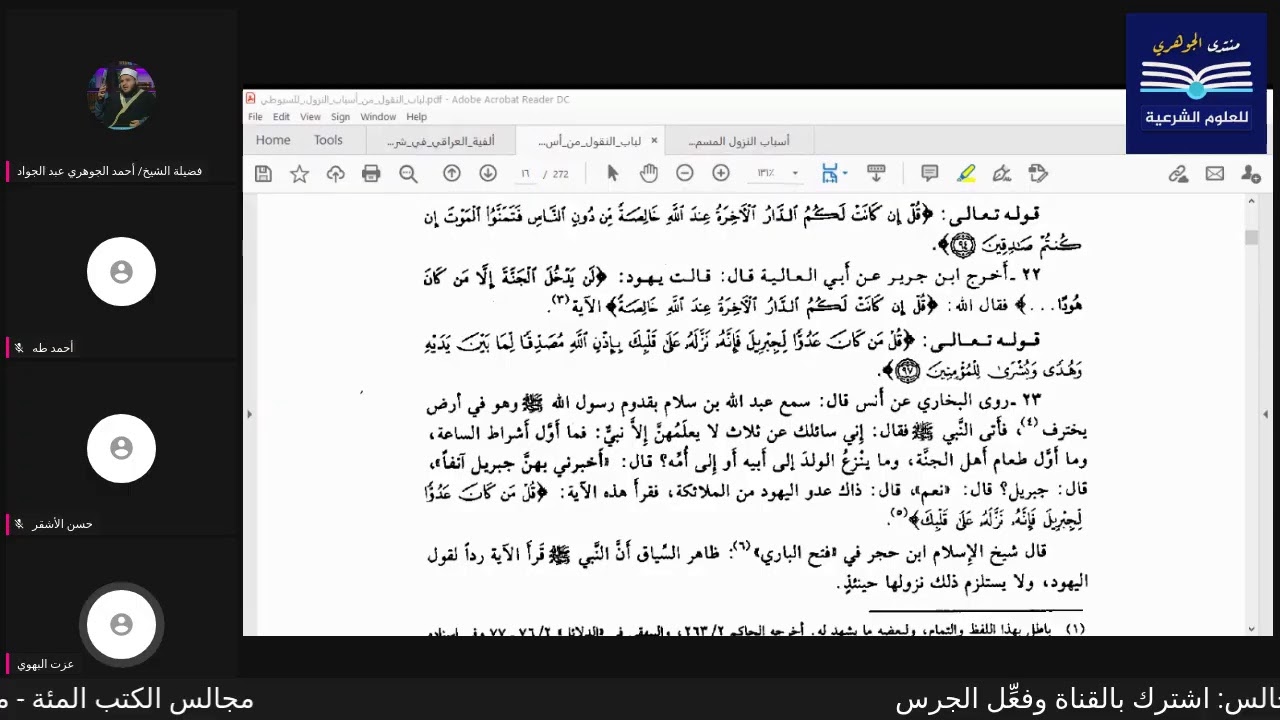 منتدى الجوهري
للعلوم الشرعية
لباب_النقول_من_أسباب_النزول_للسيوطي.pdf - Adobe Acrobat Reader DC
File Edit View Sign Window Help
Home Tools
ألفية_العراقي_في_شر...
لباب_النقول_من_أس... ×
أسباب النزول المسم...
١٦ / 272
١٣١٪
فضيلة الشيخ/ أحمد الجوهري عبد الجواد
أحمد طه
حسن الأشقر
عزت البهوي
قوله تعالى: ﴿قُلْ إِن كَانَتْ لَكُمُ الدَّارُ الْآخِرَةُ عِندَ اللَّهِ خَالِصَةً مِّن دُونِ النَّاسِ فَتَمَنَّوُا الْمَوْتَ إِن
كُنتُمْ صَادِقِينَ ٩٤﴾.
٢٢ ـ أخرج ابن جرير عن أبي العالية قال: قالت يهود: ﴿لَن يَدْخُلَ الْجَنَّةَ إِلَّا مَن كَانَ
هُودًا...﴾ فقال الله: ﴿قُلْ إِن كَانَتْ لَكُمُ الدَّارُ الْآخِرَةُ عِندَ اللَّهِ خَالِصَةً﴾ الآية(٣).
قوله تعالى: ﴿قُلْ مَن كَانَ عَدُوًّا لِّجِبْرِيلَ فَإِنَّهُ نَزَّلَهُ عَلَىٰ قَلْبِكَ بِإِذْنِ اللَّهِ مُصَدِّقًا لِّمَا بَيْنَ يَدَيْهِ
وَهُدًى وَبُشْرَىٰ لِلْمُؤْمِنِينَ ٩٧﴾.
٢٣ ـ روى البخاري عن أنس قال: سمع عبد الله بن سلام بقدوم رسول الله ﷺ وهو في أرض
يخترف(٤)، فأتى النَّبي ﷺ فقال: إني سائلك عن ثلاث لا يعلَمُهنَّ إلاَّ نبيٌّ: فما أوَّل أشراط الساعة،
وما أوَّل طعام أهل الجنَّة، وما ينْزعُ الولدَ إلى أبيه أو إلى أُمِّه؟ قال: «أخبرني بهنَّ جبريل آنفاً»،
قال: جبريل؟ قال: «نعم»، قال: ذاك عدو اليهود من الملائكة، فقرأ هذه الآية: ﴿قُلْ مَن كَانَ عَدُوًّا
لِّجِبْرِيلَ فَإِنَّهُ نَزَّلَهُ عَلَىٰ قَلْبِكَ﴾(٥).
قال شيخ الإسلام ابن حجر في «فتح الباري»(٦): ظاهر السِّياق أنَّ النَّبي ﷺ قَرأ الآية رداً لقول
اليهود، ولا يستلزم ذلك نزولها حينئذٍ.
(١) باطل بهذا اللفظ والتمام، ولبعضه ما يشهد له. أخرجه الحاكم ٢/ ٢٦٣، والبيهقي في «الدلائل» ٢/ ٧٦ ـ ٧٧ وفي إسناده
جالس: اشترك بالقناة وفعِّل الجرس
مجالس الكتب المئة - م